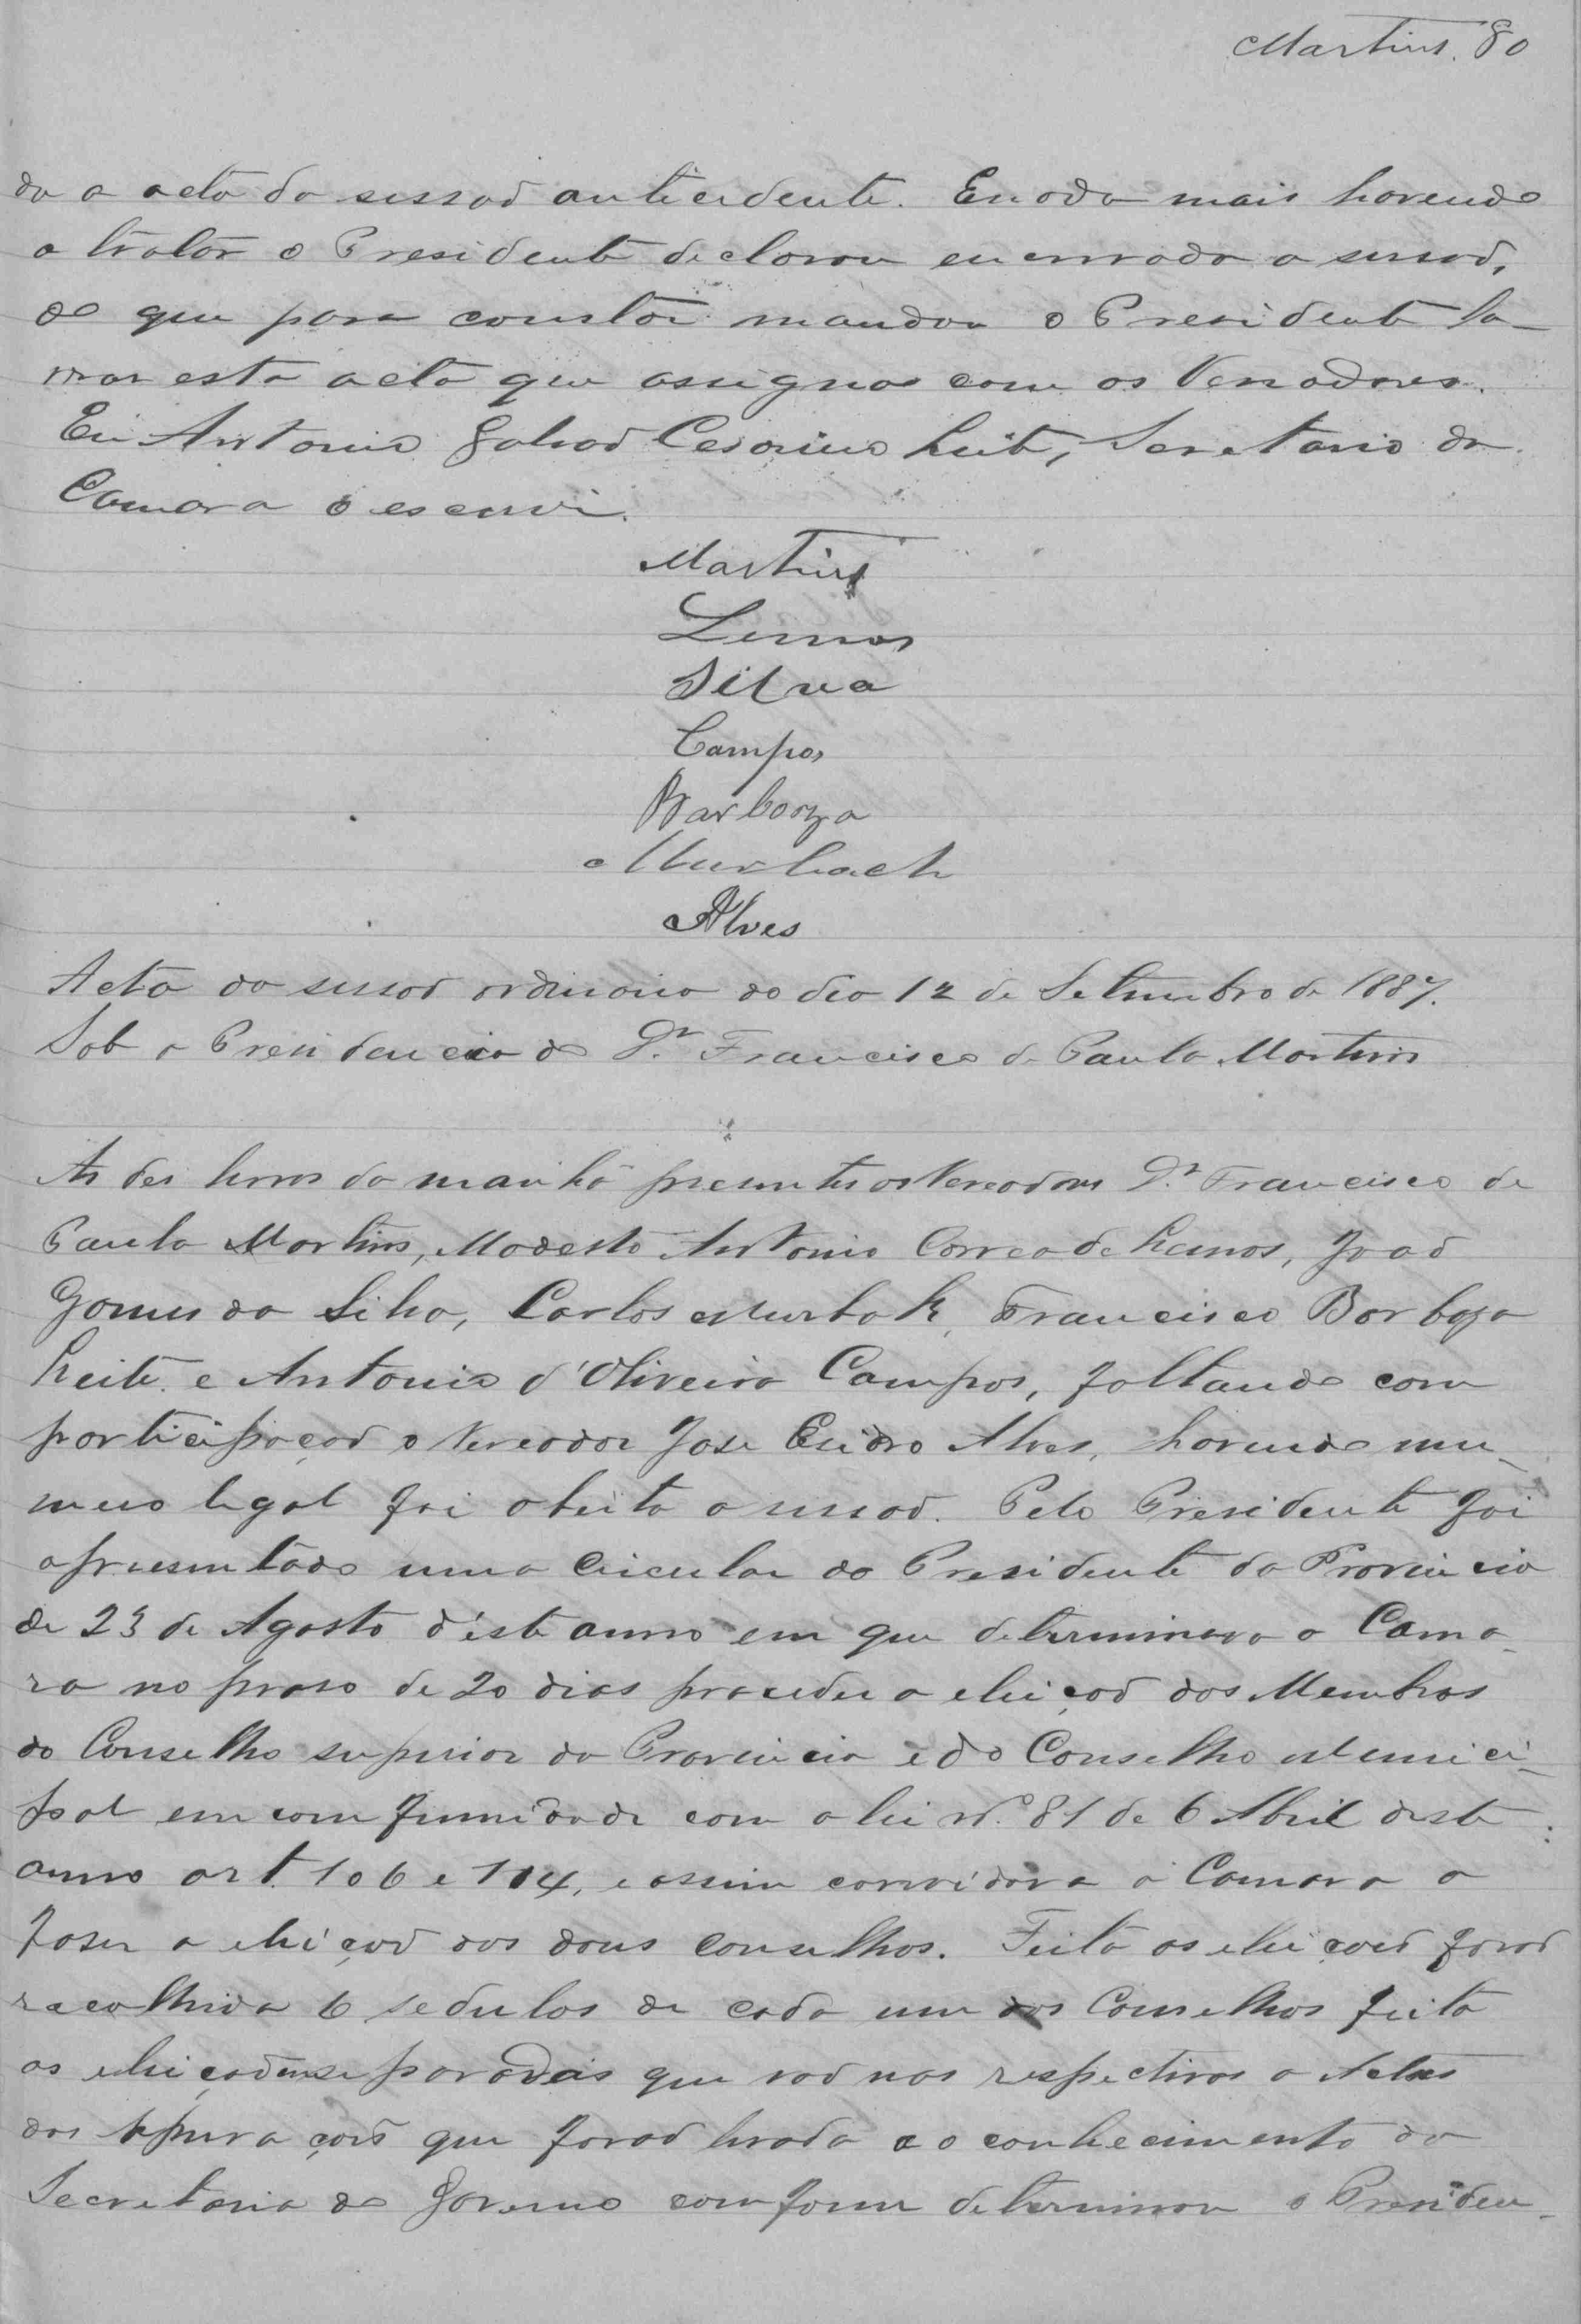 Martins. 80
da a acta da sessaõ antecedente. E nada mais havendo
a tratar o Presidente declarou encerrada a sessaõ,
do que para constar mandou o Presidente la-
vrar esta acta que assigna com os Vereadores.
Eu Antonio Galvaõ Cesarino Leite, Secretario da
Camara o escrevi.
Martins
Lemos
Silva
Campos
Barboza
Murbach
Alves
Acta da sessaõ ordinaria do dia 12 de Setembro de 1887.
Sob a Presidencia do Dr. Francisco de Paula Martins
As des horas da manhã presentes os Vereadores Dr. Francisco de
Paula Martins, Modesto Antonio Correa de Lemos, Joaõ
Gomes da Silva, Carlos Murbak, Francisco Barboza
Leite e Antonio d'Oliveira Campos, faltando com
participaçaõ o Vereador Jose Esidro Alves, havendo nu-
mero legal foi aberta a sessaõ. Pelo Presidente foi
apresentado uma circular do Presidente da Provincia
de 23 de Agosto d'este anno em que determinava a Cama-
ra no praso de 20 dias proceder a eleiçaõ dos Membros
do Conselho superior da Provincia e do Conselho Munici-
pal em comformidade com a lei Nº. 81 de 6 Abril deste
anno art. 106 e 114, e assim convidava a Camara a
faser a eleiçaõ dos dous conselhos. Feita as eleiçoes foraõ
recolhida 6 sedulas de cada um dos Conselhos feita
as eleiçoẽs em separadas que vaõ nas respectivas Actas
das Apuraçoẽs que foraõ levada ao conhecimento da
Secretaria do Governo comforme determinou o Presiden-